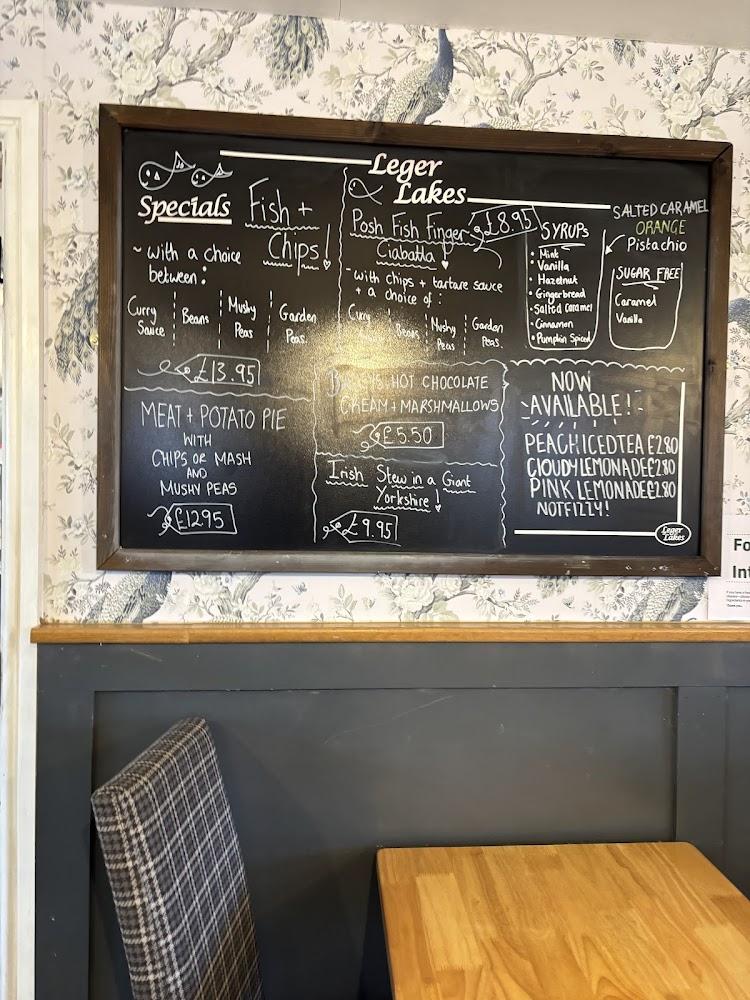 Leger
Lakes
Specials
Fish +
Chips!
~ with a choice
between:
Curry
Sauce
Beans
Mushy
Peas
Garden
Peas.
£13.95
MEAT + POTATO PIE
WITH
CHIPS OR MASH
AND
MUSHY PEAS
£12.95
Posh Fish Finger
Ciabatta
£8.95
~with chips + tartare sauce
+ a choice of:
Curry
Beans
Mushy
Peas
Garden
Peas.
HOT CHOCOLATE
CREAM + MARSHMALLOWS
£5.50
Irish Stew in a Giant
Yorkshire!
£9.95
SYRUPS
• Mint
• Vanilla
• Hazelnut
• Gingerbread
• Salted Caramel
• Cinnamon
• Pumpkin Spiced
SALTED CARAMEL
ORANGE
Pistachio
SUGAR FREE
Caramel
Vanilla
NOW
AVAILABLE!
PEACH ICED TEA £2.80
CLOUDY LEMONADE £2.80
PINK LEMONADE £2.80
NOT FIZZY!
Leger
Lakes
Fo
Int